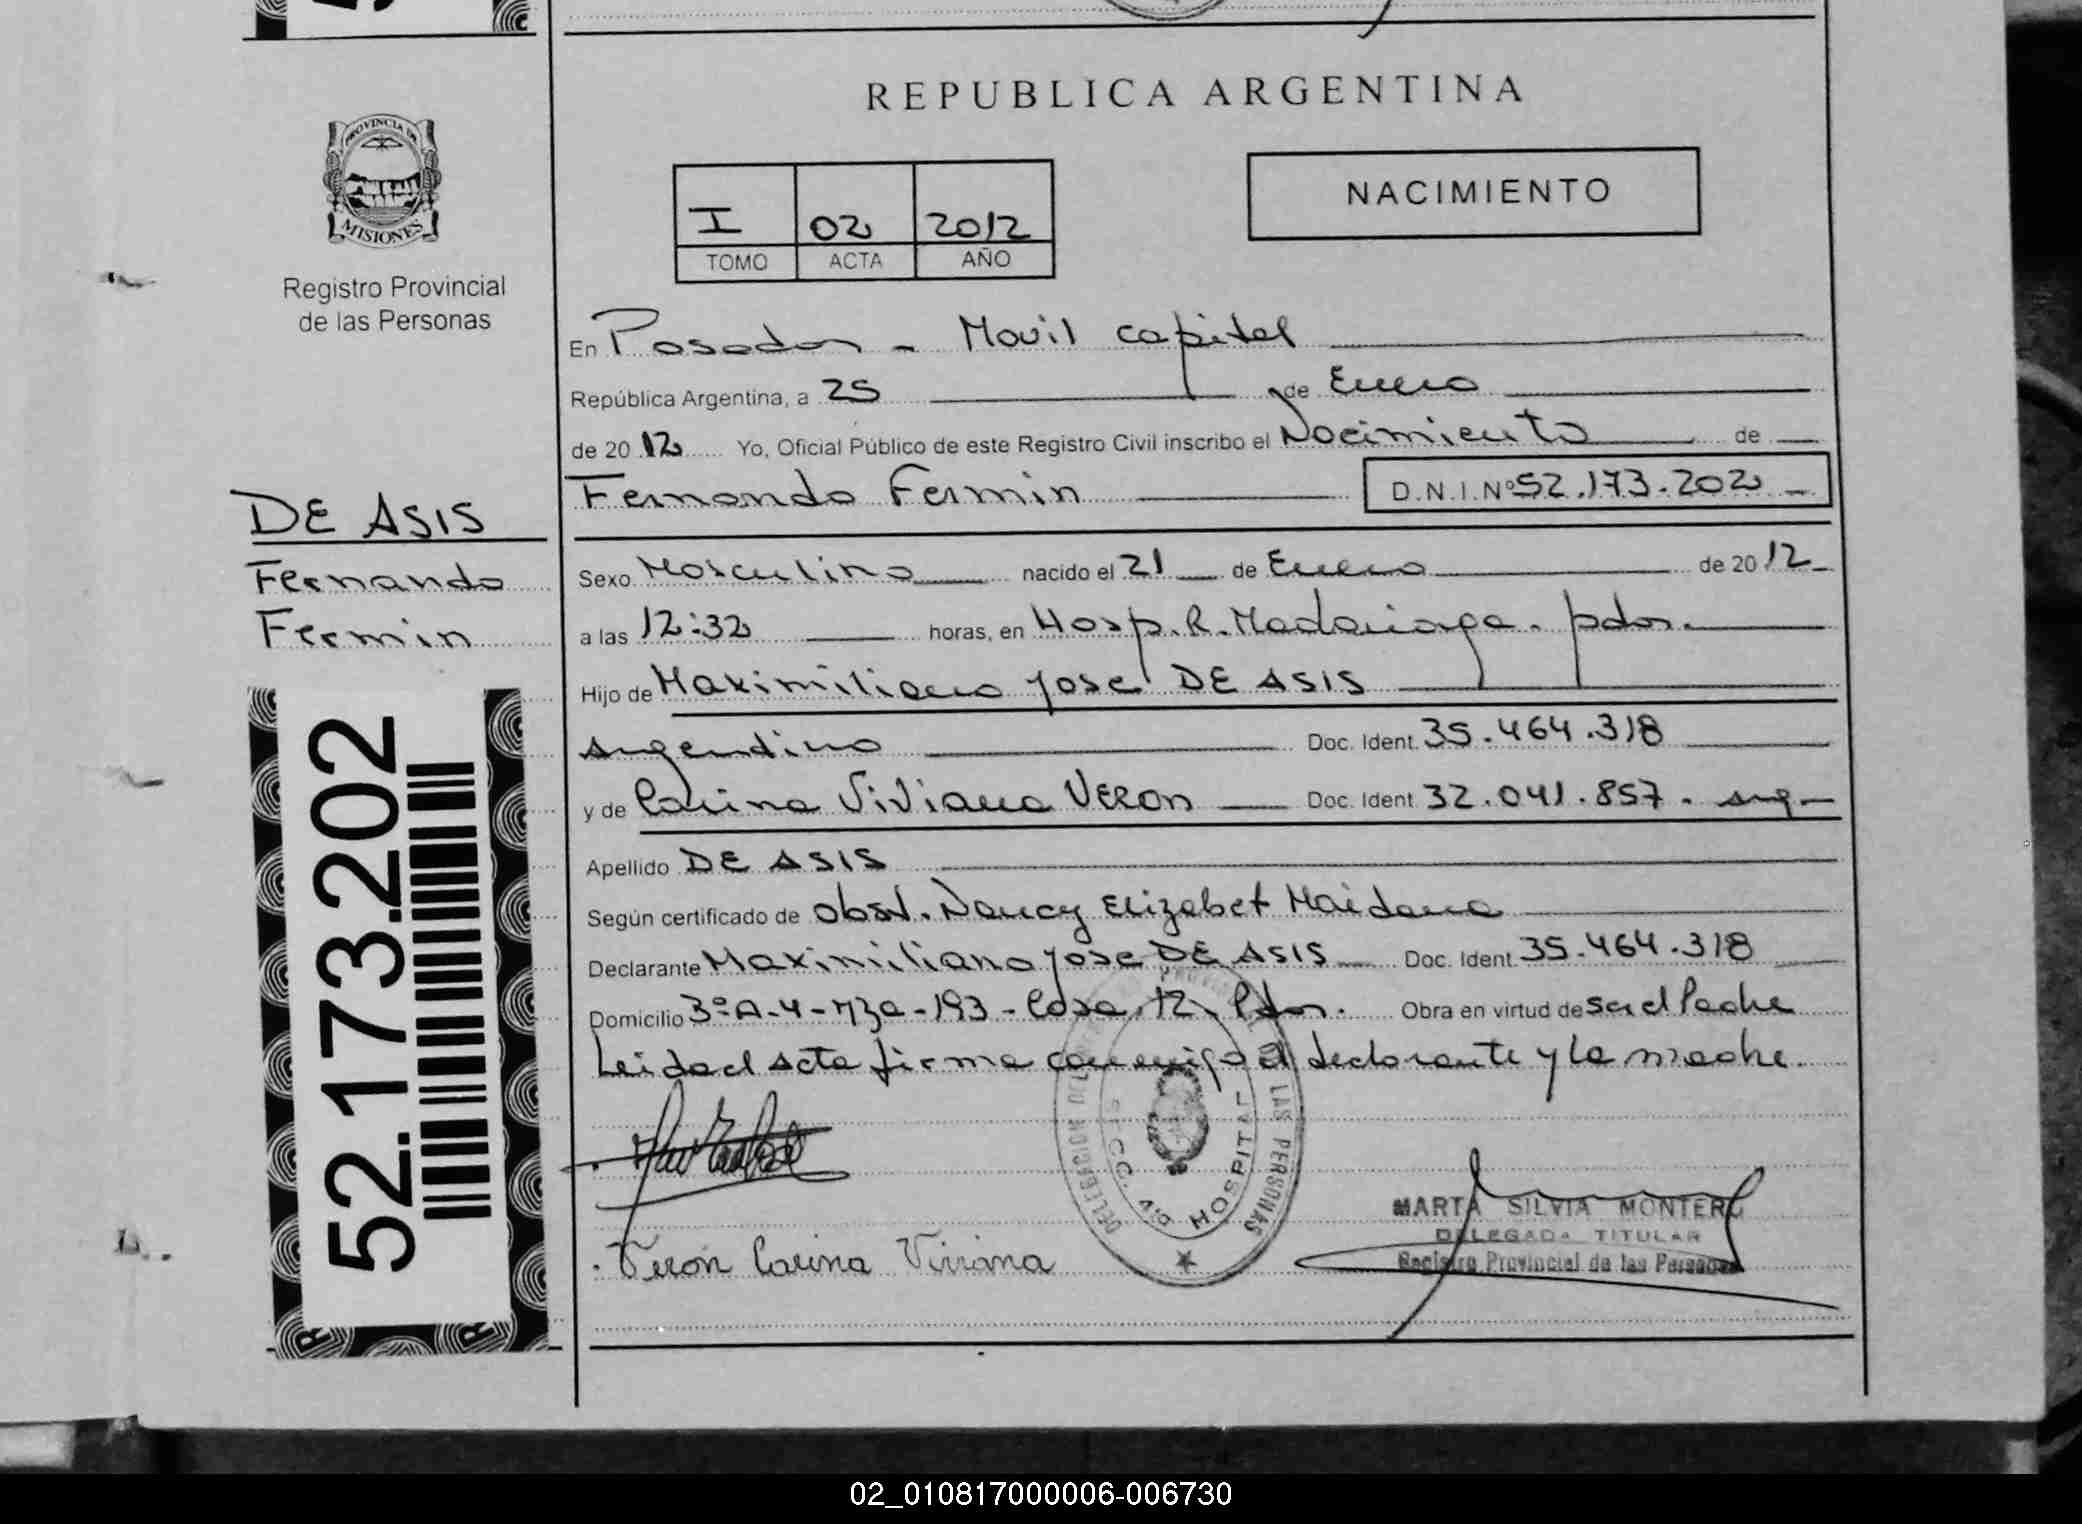 REPUBLICA ARGENTINA
PROVINCIA DE
MISIONES
Registro Provincial
de las Personas
I 02 2012
TOMO ACTA AÑO
NACIMIENTO
En Posadas - Movil capital
República Argentina, a 25 de Enero
de 2012 Yo, Oficial Público de este Registro Civil inscribo el Nacimiento de
Fernando Fermin D.N.I. Nº 52.173.202
DE ASIS
Fernando
Fermin
52.173.202
Sexo Masculino nacido el 21 de Enero de 2012
a las 12:32 horas, en Hosp. R. Madariaga. pdas.
Hijo de Maximiliano Jose DE ASIS
argentino Doc. Ident. 35.464.318
y de Carina Viviana VERON Doc. Ident. 32.041.857. arg
Apellido DE ASIS
Según certificado de obst. Nancy Elizabet Maidana
Declarante Maximiliano Jose DE ASIS Doc. Ident. 35.464.318
Domicilio 3º-A-4-mza-193-Casa.12. Pdas. Obra en virtud de ser el Padre
Leida el acta firma conmigo el declarante y la madre.
DE LAS PERSONAS
SECC. 4ª HOSPITAL
Veron Carina Viviana
MARTA SILVIA MONTERO
DELEGADA TITULAR
Registro Provincial de las Personas
02_010817000006-006730